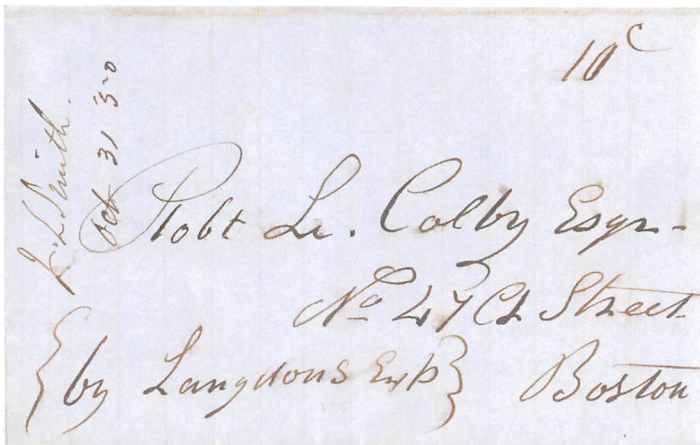 10c
J. L. Smith.
Oct 31 50
Robt L. Colby Esqr-
No 47 Ct Street
{by Langdons Exp}
Boston